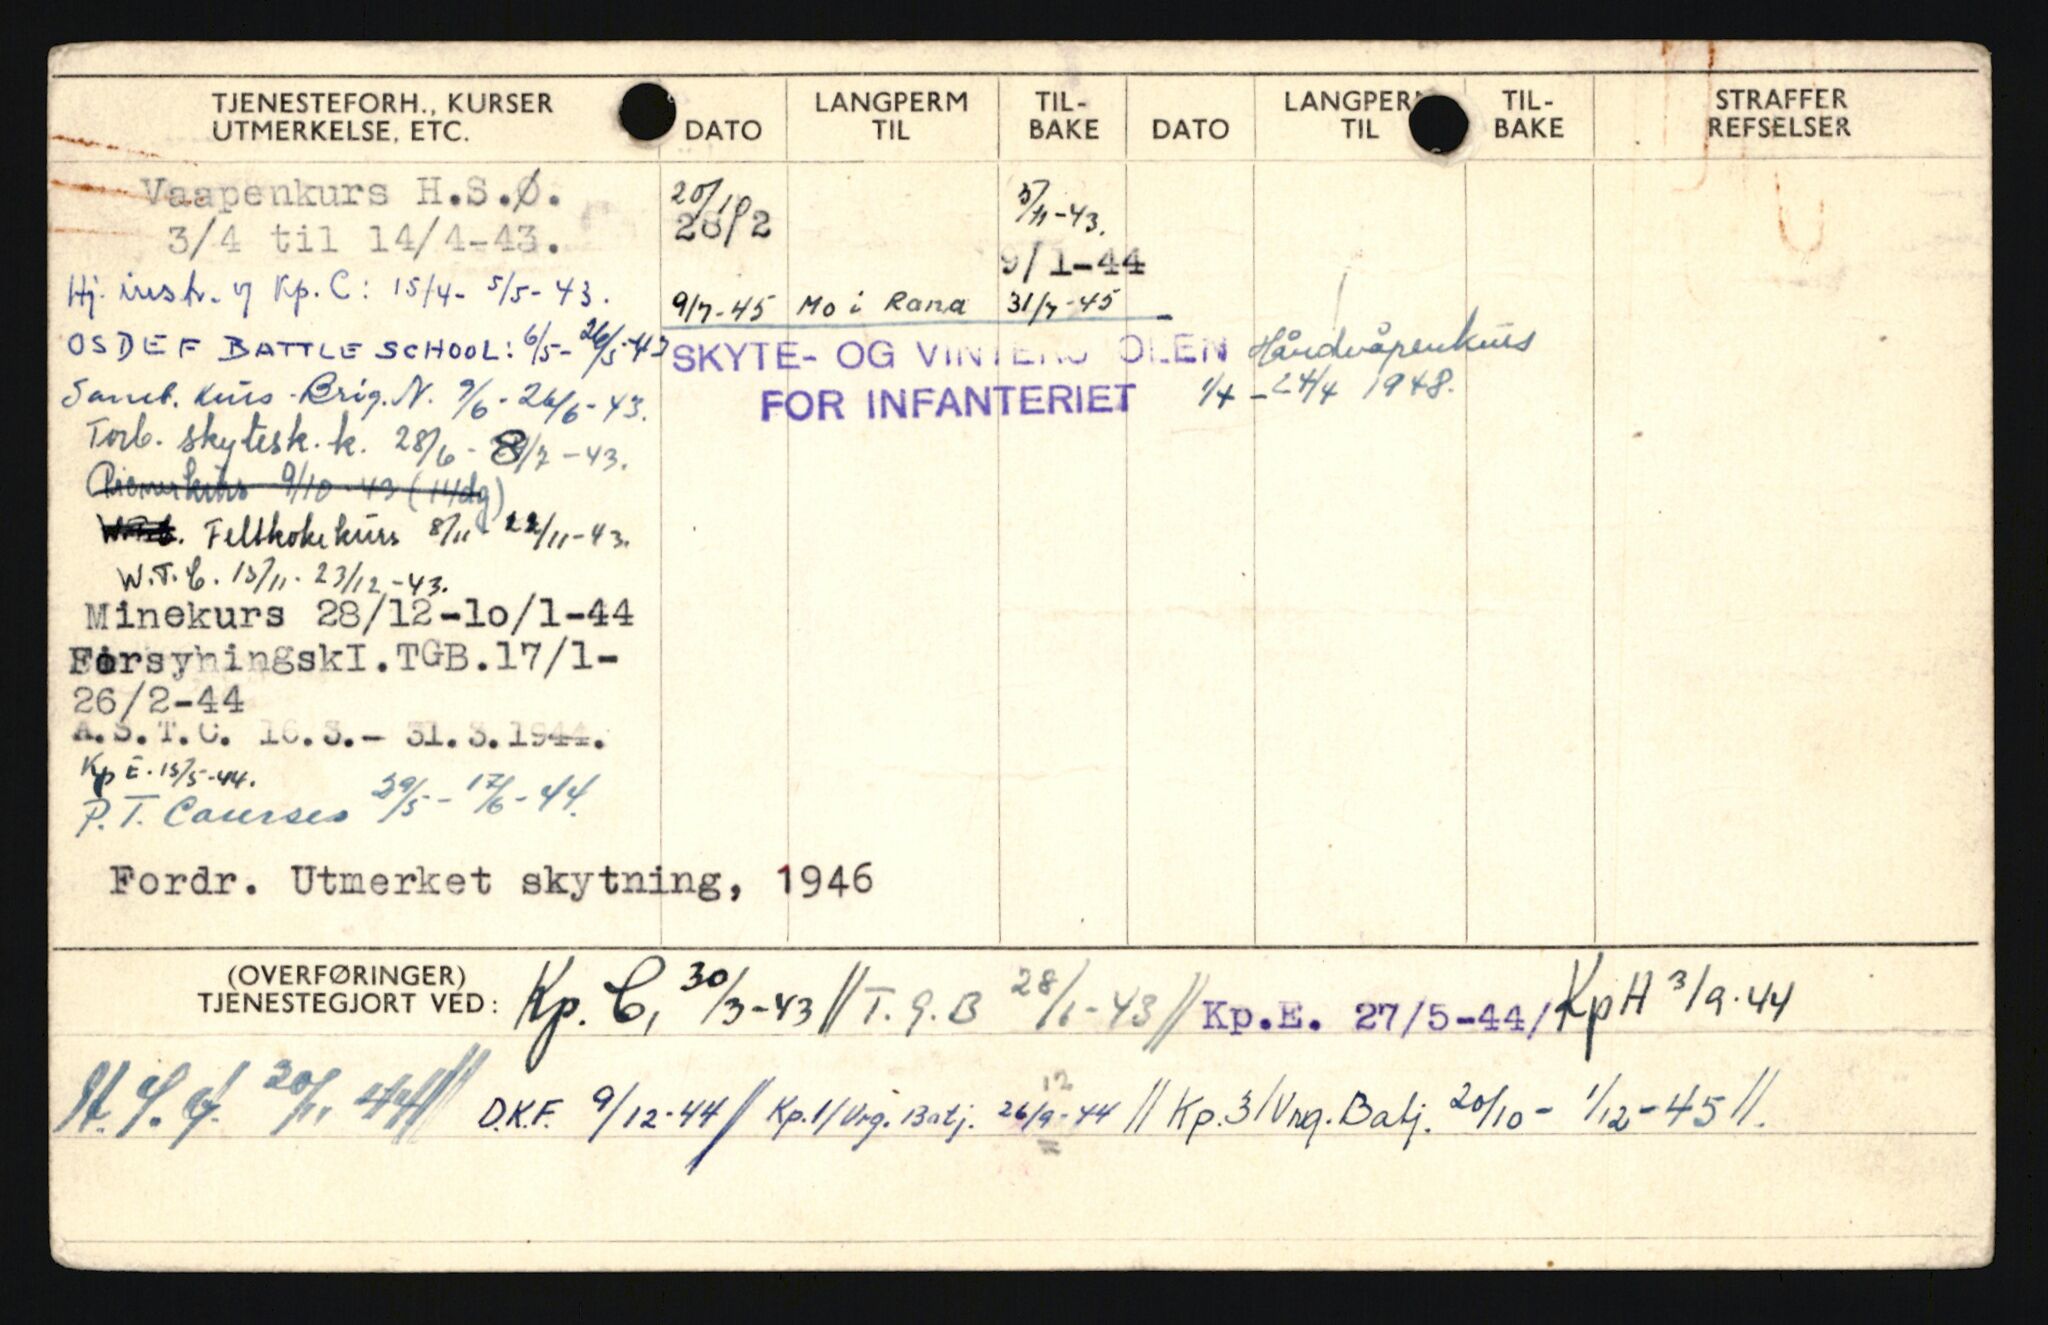 TJENESTEFORH., KURSER
UTMERKELSE, ETC.
DATO
LANGPERM
TIL
TIL-
BAKE
DATO
LANGPER
TIL
TIL-
BAKE
STRAFFER
REFSELSER
Vaapenkurs H.S.Ø.
3/4 til 14/4-43.
Hj. instr. v Kp. C: 15/4- 5/5- 43.
OSDEF BATTLE SCHOOL: 6/5- 26/5-43
Samb. kurs Brig. N. 9/6 - 26/6 - 43.
Torb. skytesk. k. 28/6 - 8/7 - 43.
Pionerkurs 9/10-43 (14dg)
Feltkokekurs 8/11 22/11-43.
W.T.C. 13/11. 23/12-43.
Minekurs 28/12-10/1-44
ForsyningskI.TGB.17/1-
26/2-44
A.S.T.C. 16.3.- 31.3.1944.
Kp E. 15/5-44.
P.T. Courses 29/5 - 17/6 - 44.
Fordr. Utmerket skytning, 1946
20/10
5/11-43.
28/2
9/1-44
9/7-45 Mo i Rana 31/7-45
SKYTE- OG VINTERS OLEN
FOR INFANTERIET
Håndvåpenkurs
1/4 - 24/4 1948.
(OVERFØRINGER)
TJENESTEGJORT VED:
Kp. C, 30/3-43 // T.G.B 28/1-43 // Kp.E. 27/5-44/ Kp H 3/9-44
20/11. 44 // D.K.F. 9/12-44 // Kp.1/Vrg. Batj. 26/9-44 // Kp.3/Vrg. Batj. 20/10 - 1/12-45 //.
12